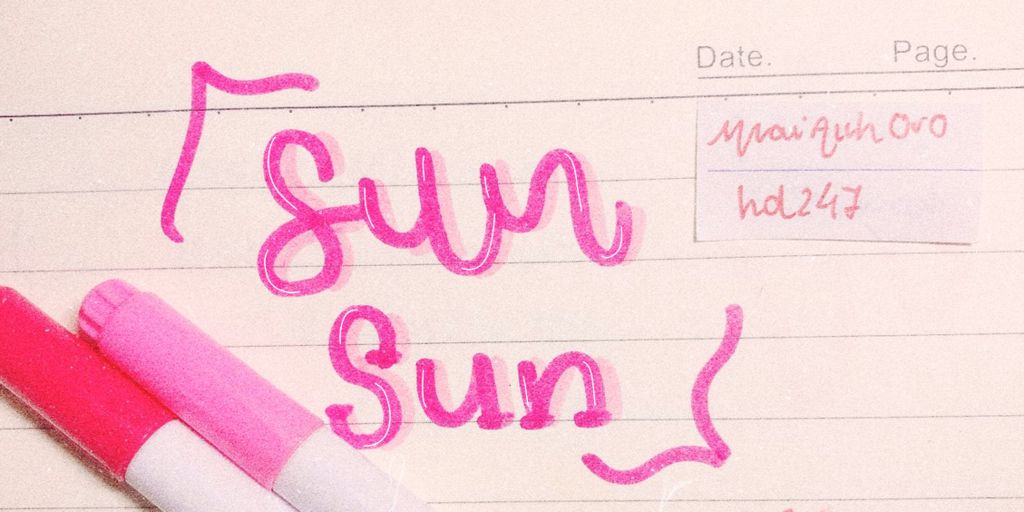 Date. Page.
maiquh0v0
hd247
sun
Sun